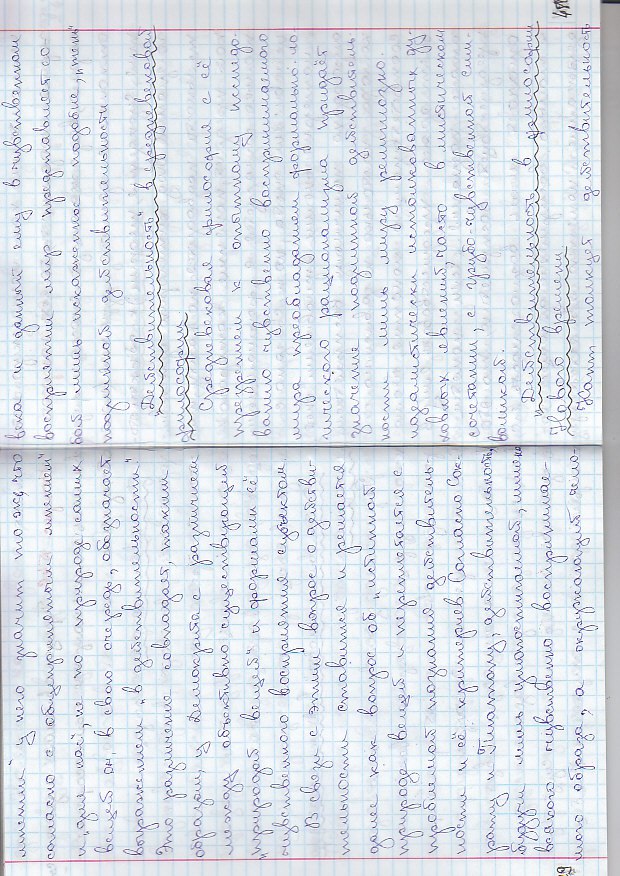 мнении" у него значит то же, что
согласно с общепринятым мнением"
и „для нас", не по природе самих
вещей он, в свою очередь, обозначает
выражением „в действительности".
Это различение совпадает, таким
образом, у Демокрита с различием
между объективно существующей
„природой вещей" и формами её
чувственного восприятия субъектом.
В связи с этим вопрос о действи-
тельности ставится и решается
далее как вопрос об „истинной
природе вещей и переплетается с
проблемой познания действитель-
ности и её критериев. Согласно Сок-
рату и Платону, действительность,
будучи лишь умопостигаемой, лишена
всякого чувственно воспринимае-
мого образа, а окружающий чело-
века и данный ему в чувственном
восприятии мир представляет со-
бой лишь искаженное подобие, „тень"
подлинной действительности.
„Действительность" в средневековой
философии
Средневековая философия с её
презрением к опытному исследо-
ванию чувственно воспринимаемого
мира преобладанием формально-ло-
гического рационализма придаёт
значение подлинной действитель
ности лишь миру религиозно-
идеалистически истолкованных ду-
ховных явлений, часто в мистическом
сочетании, с грубо-чувственной сим-
воликой.
„Действительность" в философии
Нового времени
Кант толкует действительность